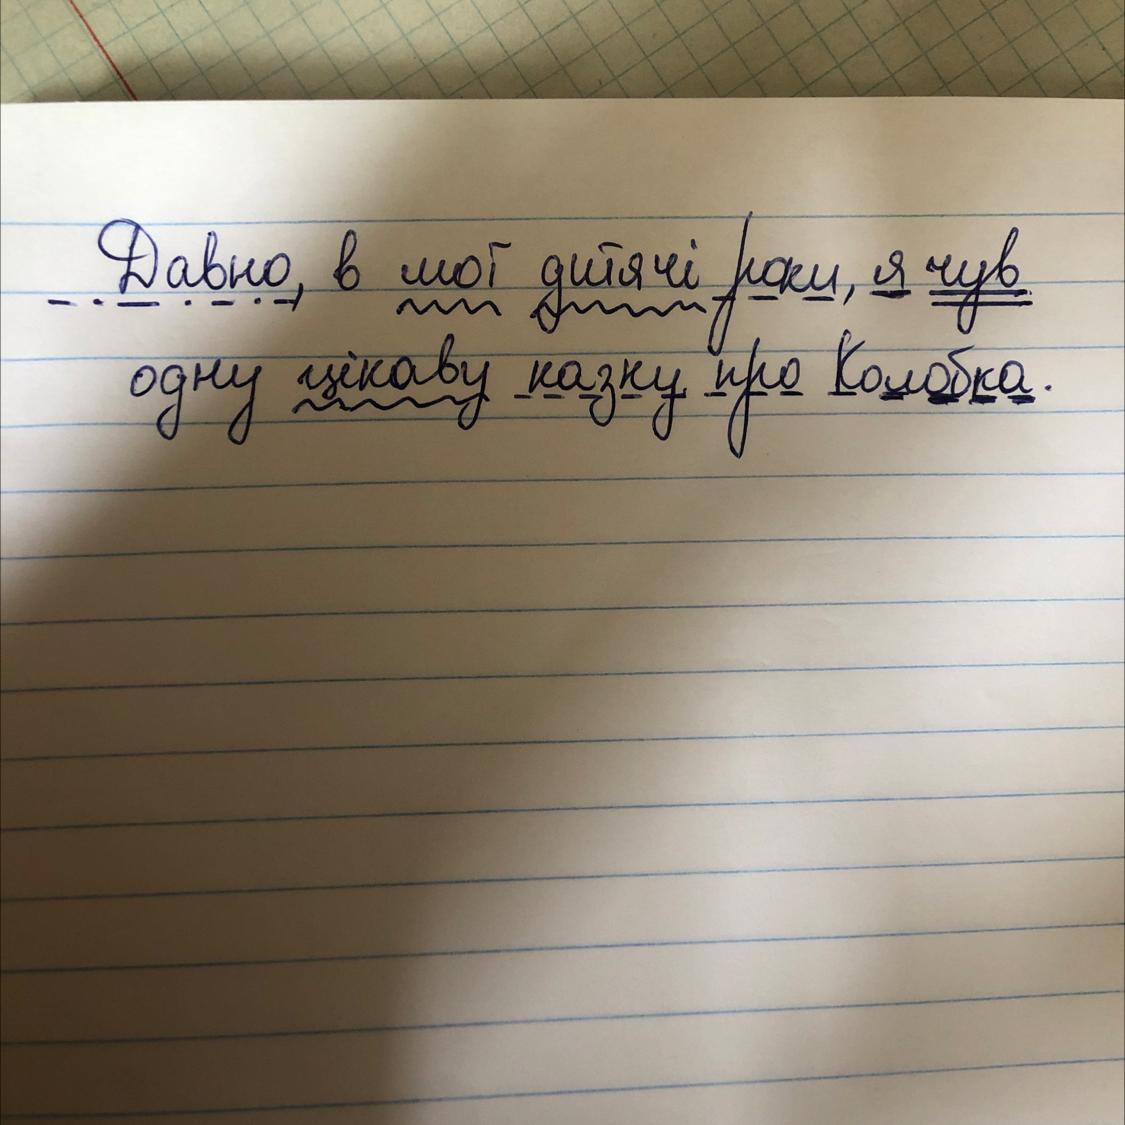 Давно, в мої дитячі роки, я чув
одну цікаву казку про Колобка.